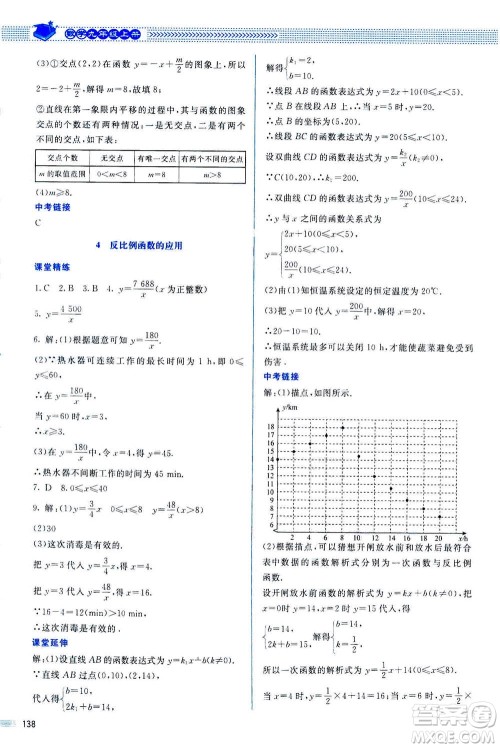 数学九年级上册
(3)①交点(2,2)在函数 y=-x+m/2 的图象上,所以
2=-2+m/2,解得 m=8,故填 8;
②直线在第一象限内平移的过程中,其与函数的图象
交点的个数有两种情况:无交点、有唯一交点和有两个
不同的交点,如下表:
交点个数 无交点 有唯一交点 有两个不同的交点
m 的取值范围 0<m<8 m=8 m>8
(4)m≥8.
中考链接
C
4 反比例函数的应用
课堂精练
1.C 2.B 3.B 4. y=7 688/x(x为正整数)
5. y=4 500/x
6. 解:(1)根据题意可知 y=180/x.
∵热水器可连续工作的最大时间为 1 h,即 0≤
y≤60,
∴ y=180/x(x≥3).
当 y=60 时,x=3.
∴x≥3.
(2)在 y=180/x 中,令 x=4,得 y=45.
∴热水器不间断工作的时间为 45 min.
7. D 8. 0≤x≤40
9. 解:(1)y=3/4x 0≤x≤8 y=48/x(x>8)
(2)30
(3)这次消毒是有效的.
把 y=3 代入 y=3/4x,得 x=4.
把 y=3 代入 y=48/x,得 x=16.
∵16-4=12>10,
∴这次消毒是有效的.
课堂延伸
解:(1)设直线 AB 的函数表达式为 y=k₁x+b(k₁≠0),
∵线段 AB 过点(0,10),(2,14),
代入得{b=10, 2k₁+b=14,
解得{k₁=2, b=10.
∴线段 AB 的函数表达式为 y=2x+10(0≤x<5).
∵点 B 在线段 AB 上,当 x=5 时,y=20,
∴点 B 的坐标为(5,20).
∴线段 BC 的函数表达式为 y=20(5≤x<10).
设双曲线 CD 的函数表达式为 y=k₂/x(k₂≠0).
∵C(10,20),∴k₂=200.
∴双曲线 CD 的函数表达式为 y=200/x(10≤x≤24).
∴y 与 x 之间的函数关系式为
y={2x+10(0≤x<5), 20(5≤x<10), 200/x(10≤x≤24).
(2)由(1)知恒温系统设定的恒定温度为 20℃.
(3)把 y=10 代入 y=200/x 中,解得 x=20,
∴20-10=10.
∴恒温系统最多可以关闭 10 h,才能使蔬菜避免受到
伤害.
中考链接
解:(1)描点,如图所示.
y/km
18
17
16
15
14
13
12
11
10
9
8
7
6
0 2 4 6 8 10 12 14 16 18 20 x/h
(2)由图象可以猜想开闸放水前和放水后最符合
表中数据的函数解析式分别为一次函数与反比例
函数.
设开闸放水前的函数解析式为 y=kx+b(k≠0),
把 x=0 时,y=14;x=2 时,y=15 代入,
得{b=14, 2k+b=15, 解得{k=1/2, b=14.
所以一次函数的解析式为 y=1/2x+14(0≤x≤8).
当 x=4 时,y=1/2×4+14=16;当 x=6 时,y=1/2×
138